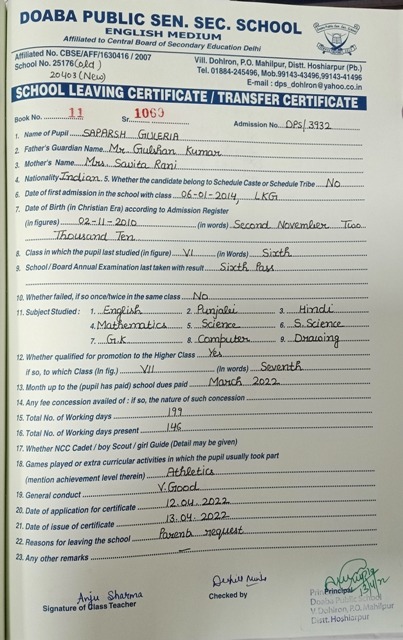 DOABA PUBLIC SEN. SEC. SCHOOL
ENGLISH MEDIUM
Affiliated to Central Board of Secondary Education Delhi
Affiliated No. CBSE/AFF/1630416 / 2007
Vill. Dohlron, P.O. Mahilpur, Distt. Hoshiarpur (Pb.)
School No. 25176 (old)
Tel. 01884-245496, Mob.99143-43496,99143-41496
20403 (New)
E-mail : dps_dohlron@yahoo.co.in
SCHOOL LEAVING CERTIFICATE / TRANSFER CERTIFICATE
Book No. 11 Sr. 1069 Admission No. DPS/3932
1. Name of Pupil SAPARSH GULERIA
2. Father's Guardian Name Mr. Gulshan Kumar
3. Mother's Name Mrs. Savita Rani
4. Nationality Indian 5. Whether the candidate belong to Schedule Caste or Schedule Tribe No
6. Date of first admission in the school with class 06-01-2014, LKG
7. Date of Birth (in Christian Era) according to Admission Register
(in figures) 02-11-2010 (in words) Second November Two
Thousand Ten
8. Class in which the pupil last studied (in figure) VI (in Words) Sixth
9. School / Board Annual Examination last taken with result Sixth Pass
10. Whether failed, if so once/twice in the same class No
11. Subject Studied : 1. English 2. Punjabi 3. Hindi
4. Mathematics 5. Science 6. S. Science
7. G.K 8. Computer 9. Drawing
12. Whether qualified for promotion to the Higher Class Yes
if so, to which Class (In fig.) VII (In words) Seventh
13. Month up to the (pupil has paid) school dues paid March 2022
14. Any fee concession availed of : if so, the nature of such concession
15. Total No. of Working days 199
16. Total No. of Working days present 146
17. Whether NCC Cadet / boy Scout / girl Guide (Detail may be given)
18. Games played or extra curricular activities in which the pupil usually took part
(mention achievement level therein) Athletics
19. General conduct V. Good
20. Date of application for certificate 12.04.2022
21. Date of issue of certificate 13.04.2022
22. Reasons for leaving the school Parents request
23. Any other remarks —
Anju Sharma
Signature of Class Teacher
Checked by
Principal
Doaba Public School
V. Dohlron, P.O. Mahilpur
Distt. Hoshiarpur